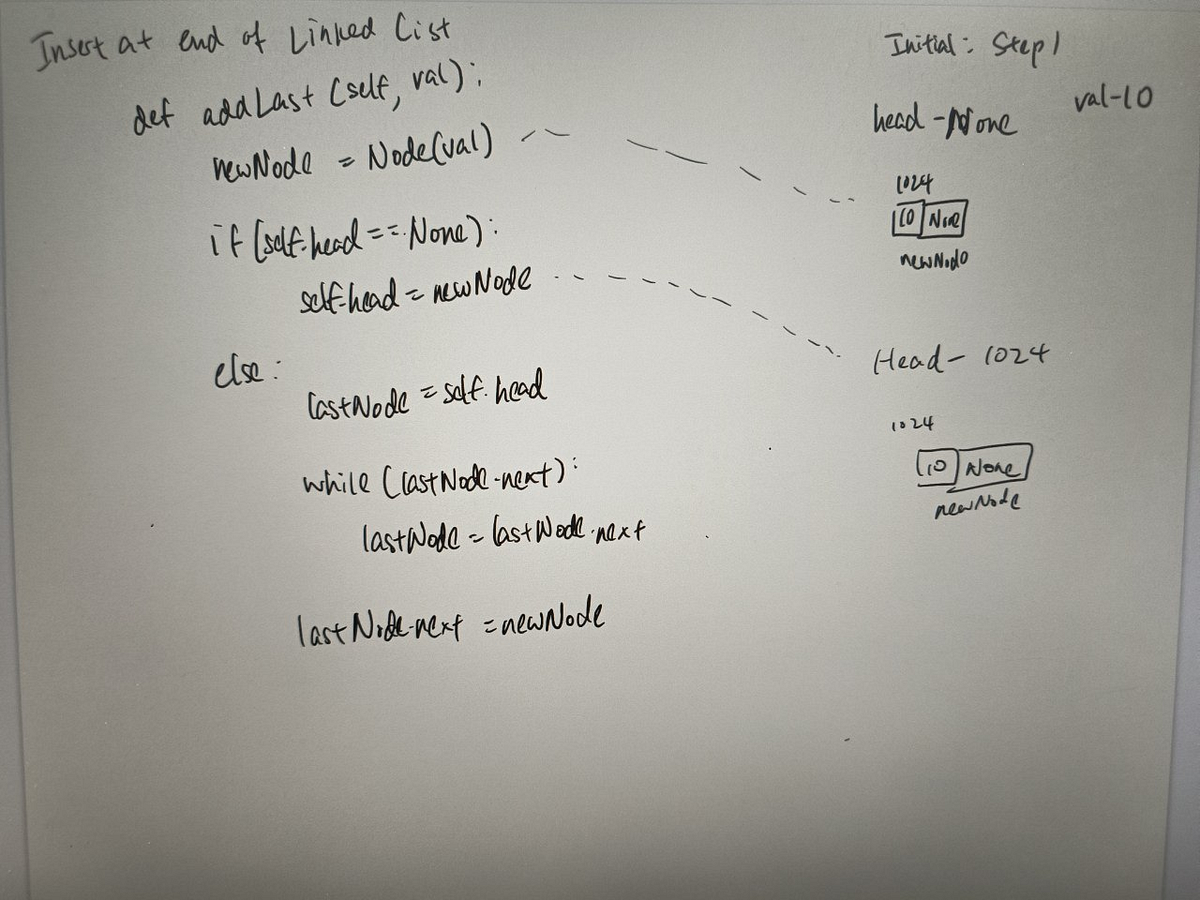 Insert at end of Linked List
def addLast (self, val):
newNode = Node(val)
if (self.head == None):
self.head = newNode
else:
lastNode = self.head
while (lastNode.next):
lastNode = lastNode.next
lastNode.next = newNode
Initial: Step 1
val-10
head - None
1024
10 None
newNode
Head - 1024
1024
10 None
newNode